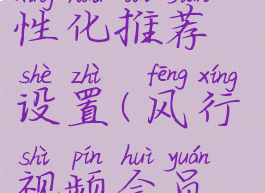 性化推荐
shè zhì fēng xíng
设置(风行
shì pín huì yuán
视频会员